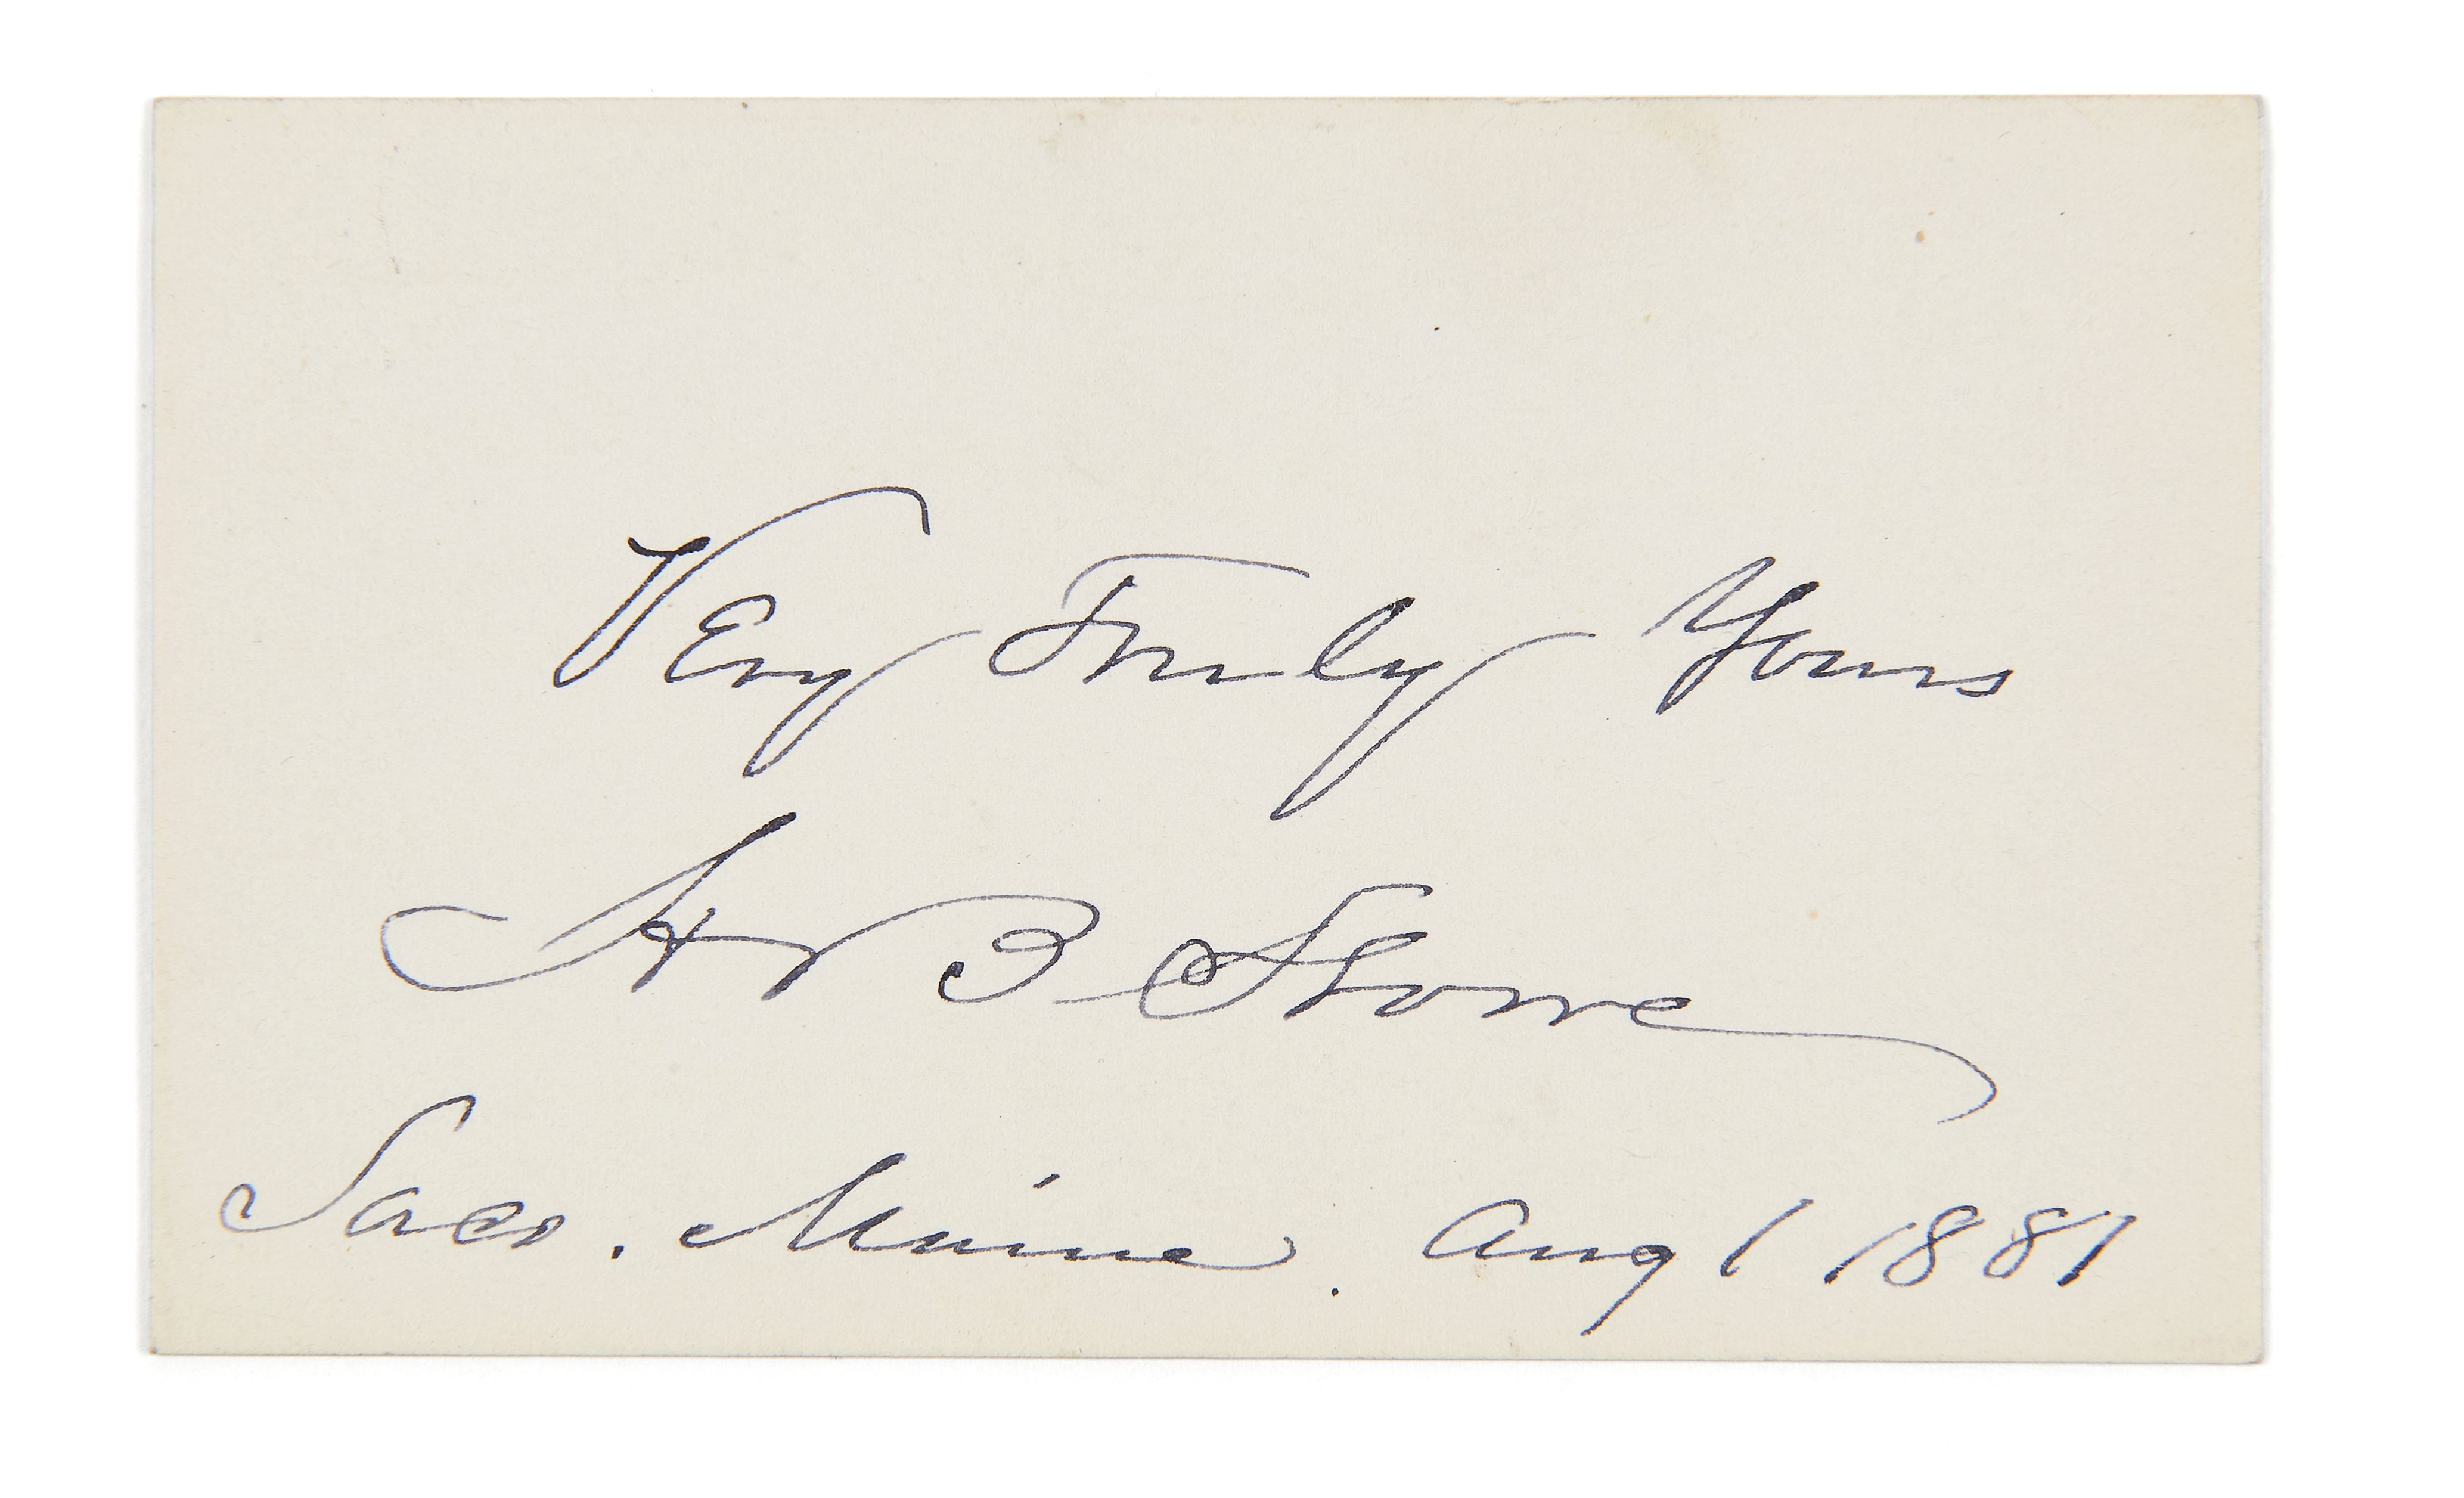 Very Truly Yours
H B Stowe
Saco. Maine. Aug 1 1881